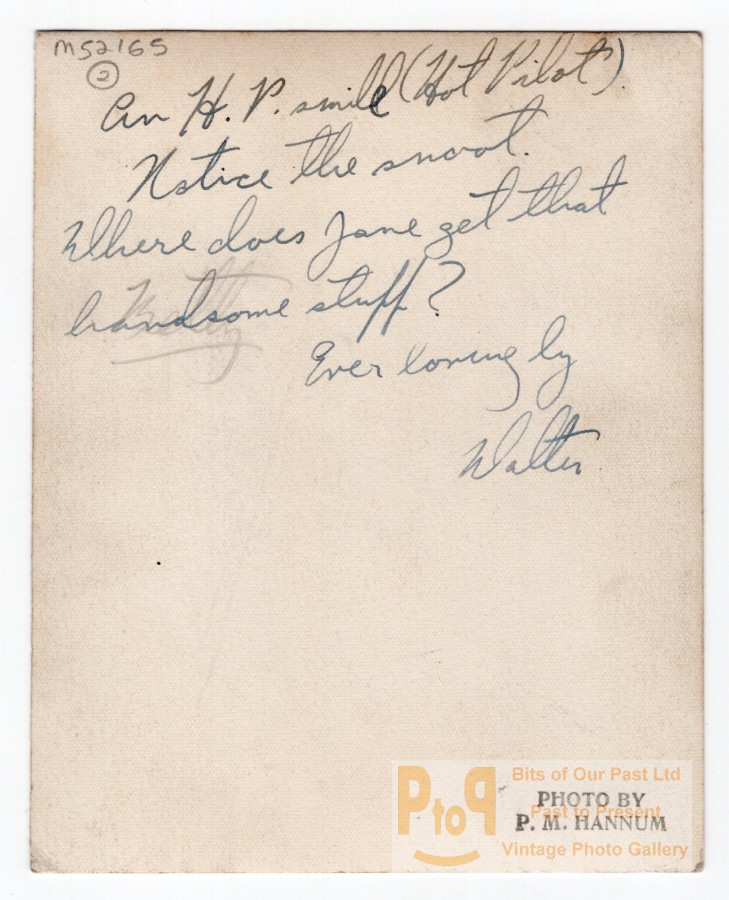 M52165
2
An H. P. smile (Hot Pilot).
Notice the snoot.
Where does Jane get that
handsome stuff?
Betty
Ever lovingly
Walter
PtoP
Bits of Our Past Ltd
PHOTO BY
Past to Present
P. M. HANNUM
Vintage Photo Gallery